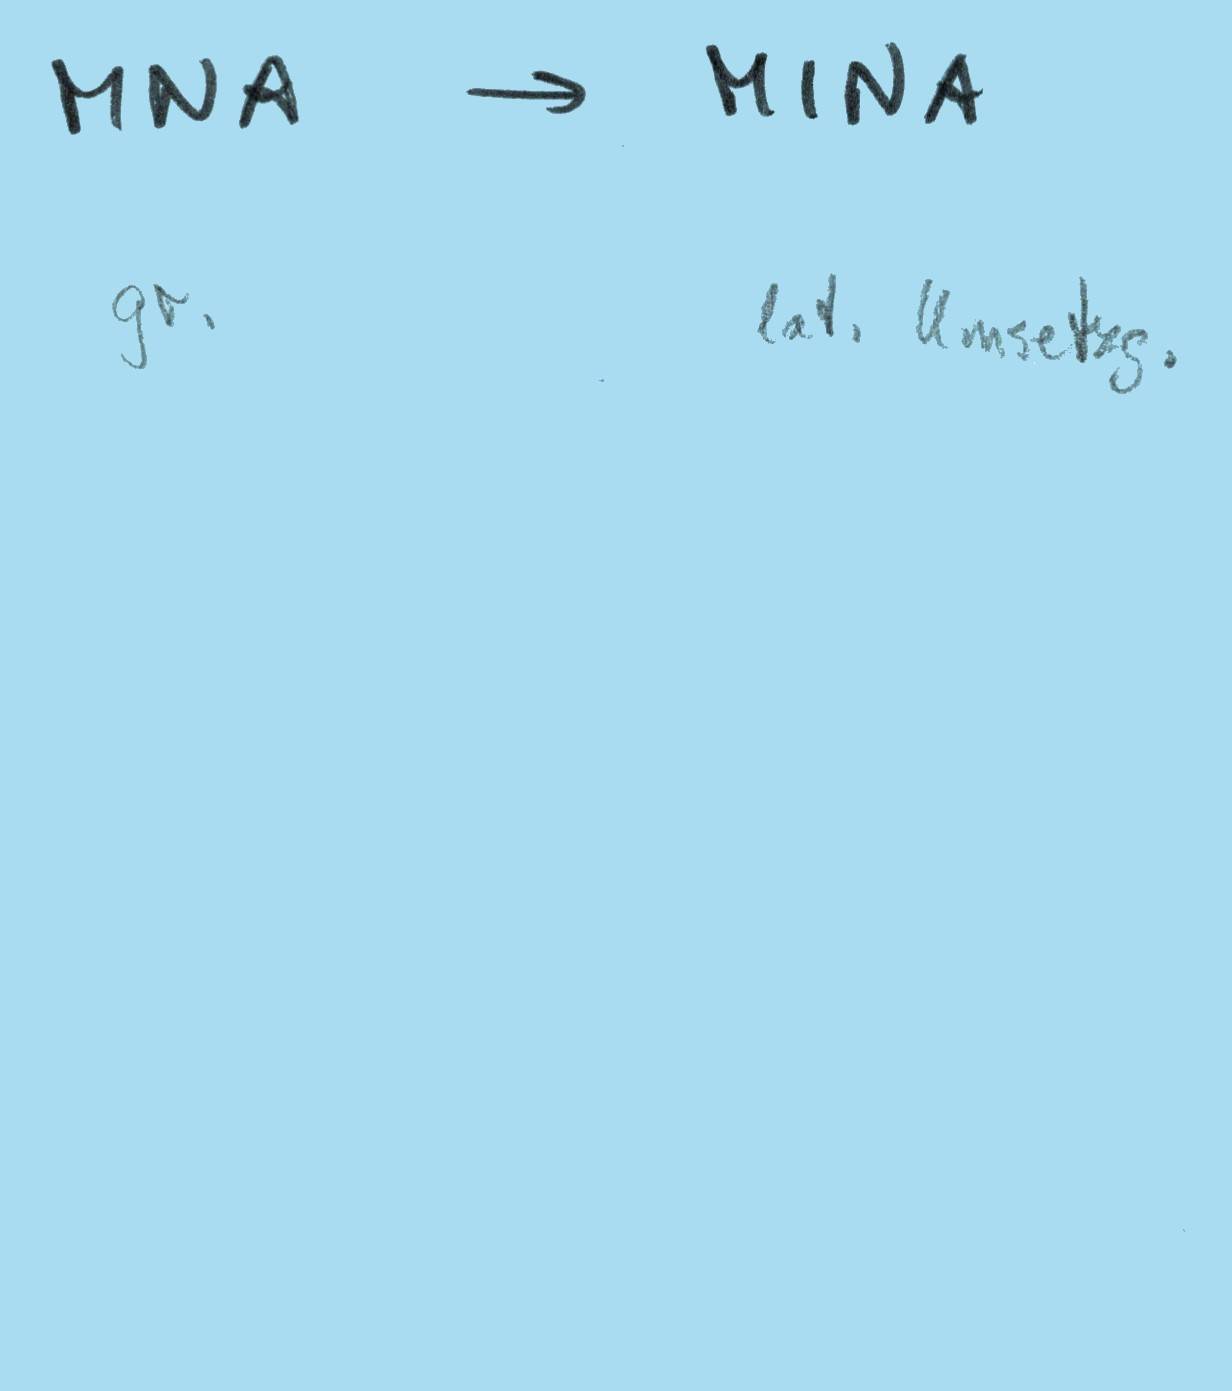 MNA → MINA
gr. lat. Umsetzg.